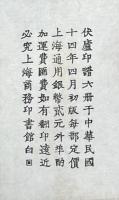 伏廬印譜六册于中華民國
十四年四月初版每部定價
上海通用銀幣貳元外埠酌
加運費匯費如有翻印遠近
必究上海商務印書館白